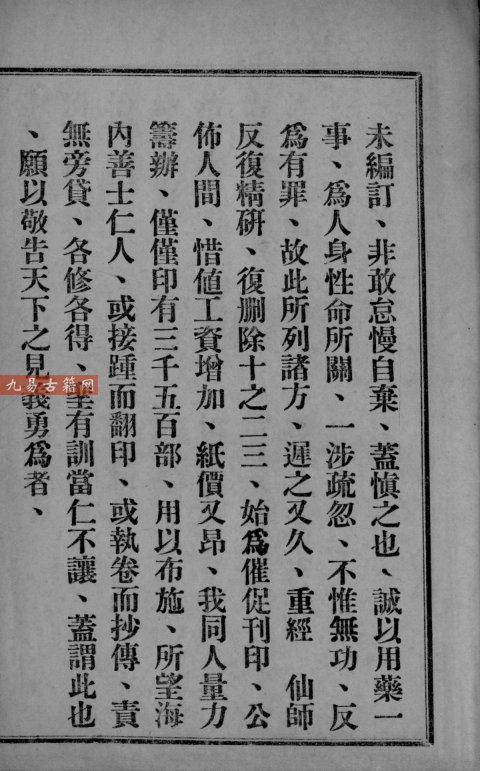 未編訂、非敢怠慢自棄、蓋愼之也、誠以用藥一
事、爲人身性命所關、一涉疏忽、不惟無功、反
爲有罪、故此所列諸方、遲之又久、重經　仙師
反復精研、復删除十之二三、始爲催促刊印、公
佈人間、惜値工資增加、紙價又昂、我同人量力
籌辦、僅僅印有三千五百部、用以布施、所望海
內善士仁人、或接踵而翻印、或執卷而抄傳、責
無旁貸、各修各得、聖有訓當仁不讓、蓋謂此也
、願以敬告天下之見義勇爲者、
九易古籍网